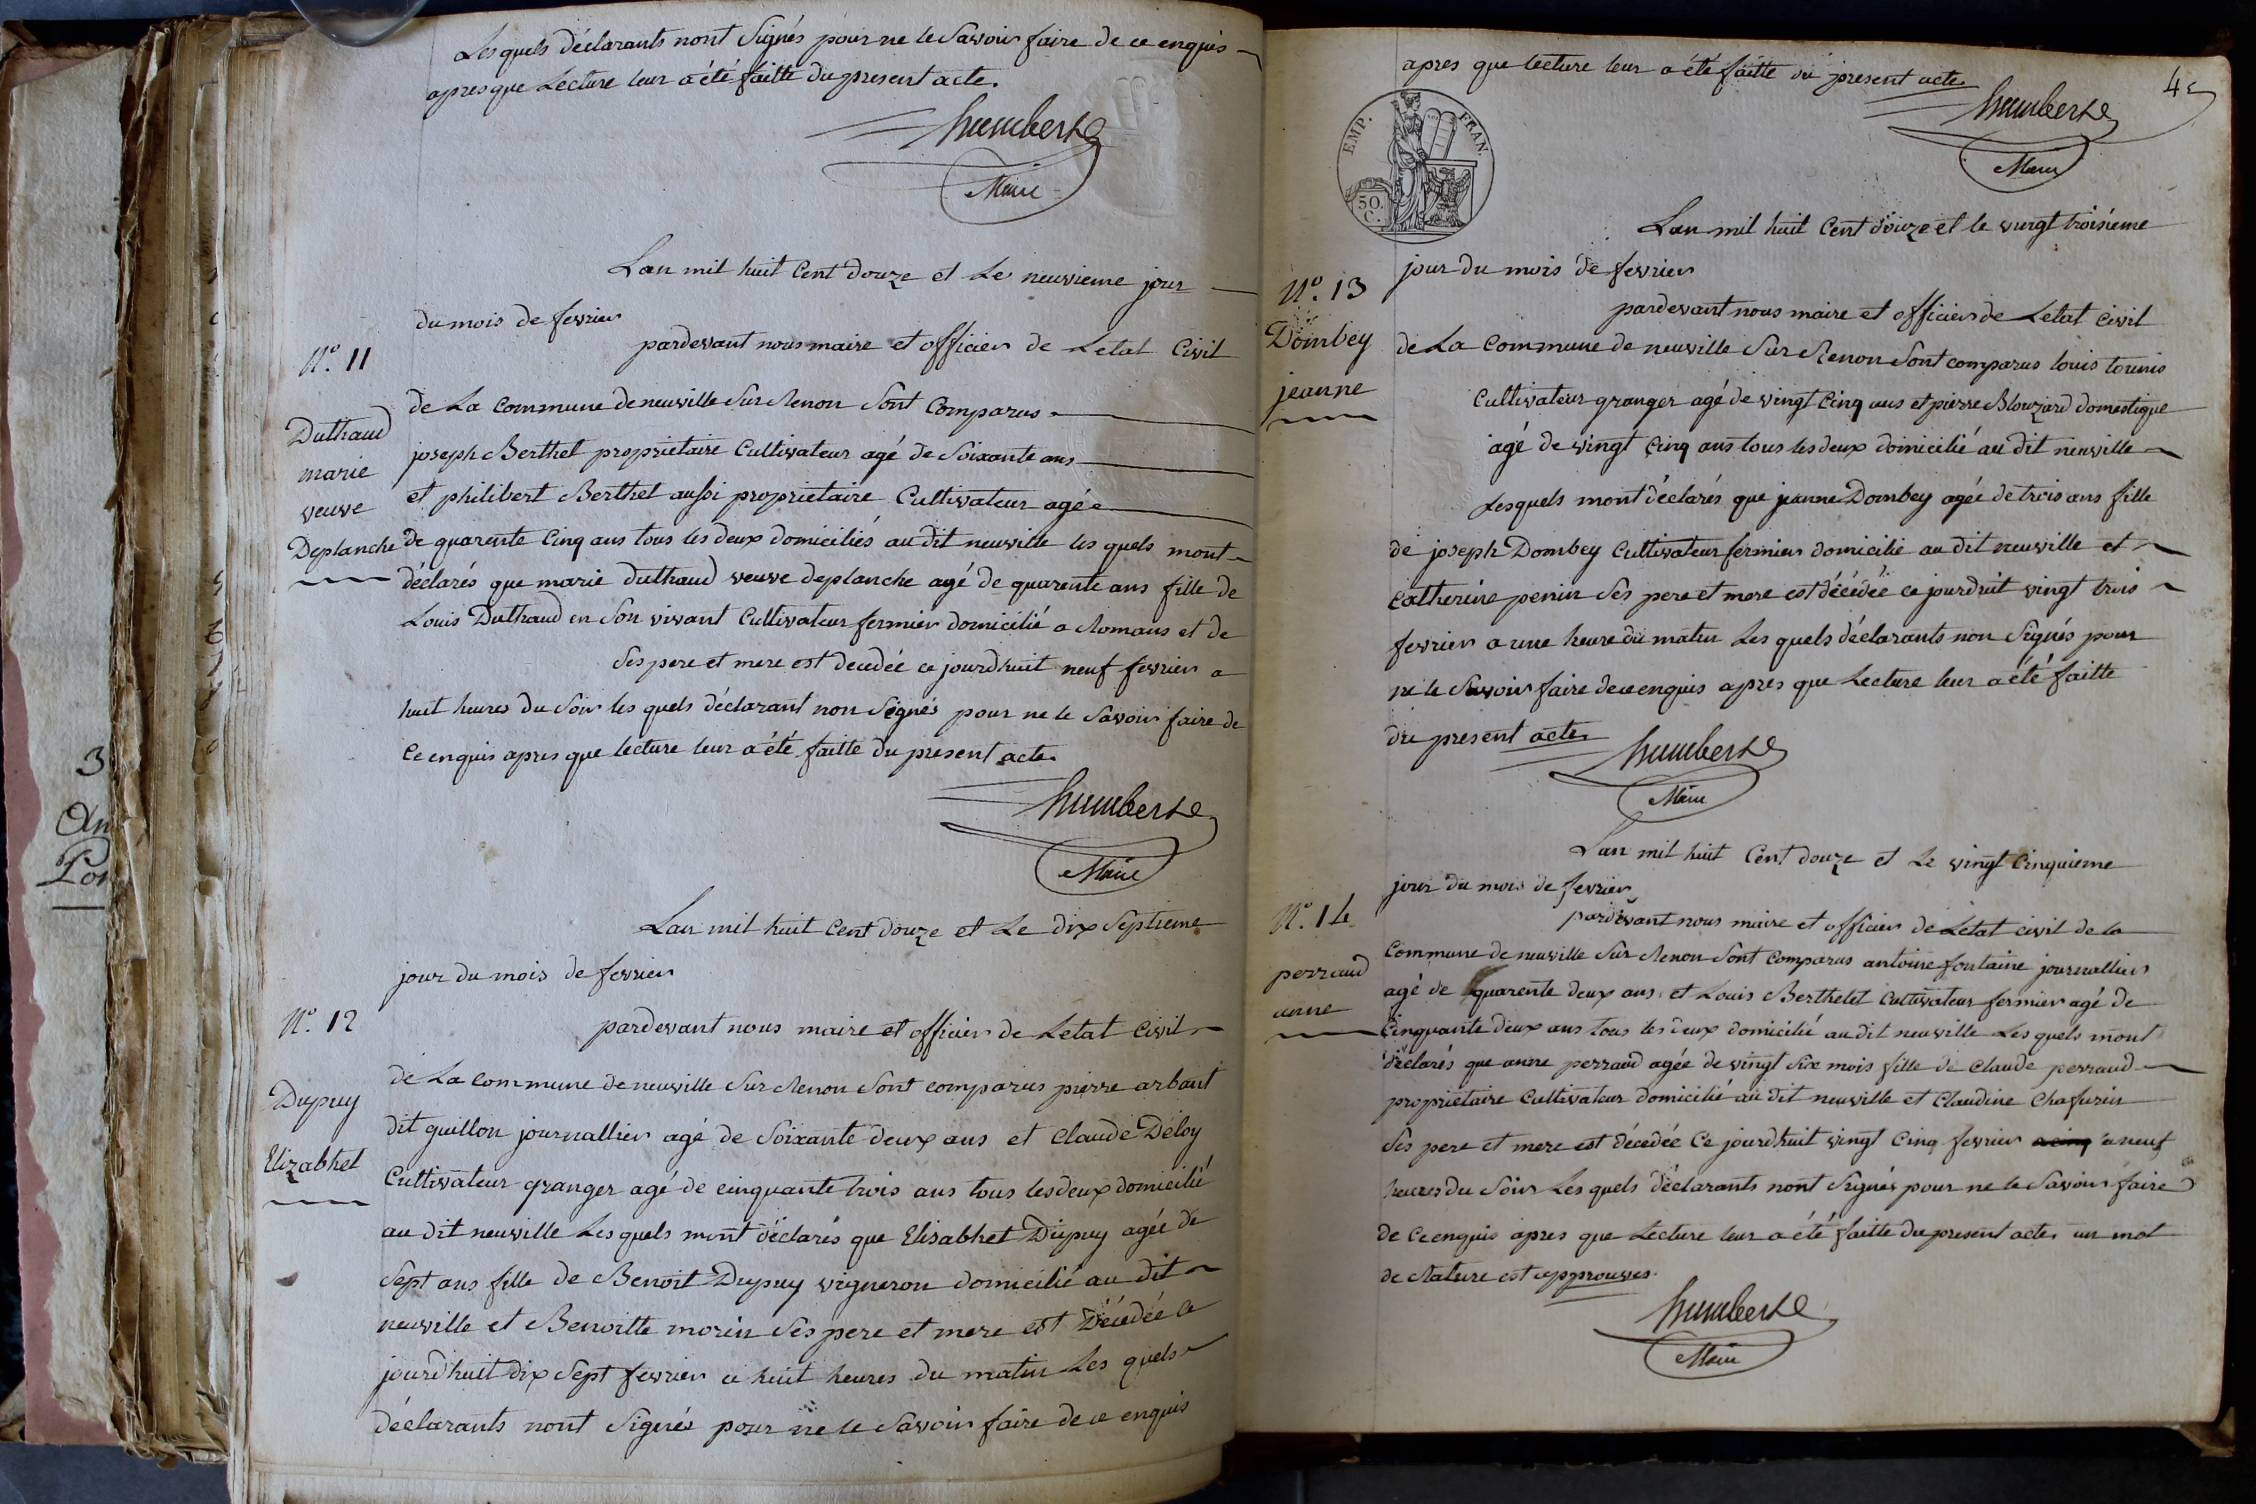 Lesquels déclarants nont Signés pour ne le Savoir faire de ce enquis
apres que Lecture leur a été faitte du present acte.
humbert
Maire
Lan mil huit Cent douze et Le neuvieme jour
du mois de fevrier
pardevant nous maire et officier de Letat Civil
N.° 11
de La Commune de neuville Sur Renon Sont Comparus
Duthaud
joseph Berthet proprietaire Cultivateur agé de Soixante ans
marie
et philibert Berthet aussi proprietaire Cultivateur agé
veuve
Deplanche
de quarente Cinq ans tous les deux domiciliés au dit neuville les quels mont
déclarés que marie duthaud veuve deplanche agé de quarente ans fille de
Louis Duthaud en Son vivant Cultivateur fermier domicilié a Romans et de
Ses pere et mere est decedée ce jourdhuit neuf fevrier a
huit heures du Soir les quels déclarant non Signés pour ne le Savoir faire de
Ce enquis apres que lecture leur a été faitte du present acte
humbert
Maire
Lan mil huit Cent douze et Le dix Septieme
jour du mois de fevrier
N.° 12
pardevant nous maire et officier de Letat Civil
de La Commune de neuville Sur Renon Sont comparus pierre arbant
Dupuy
dit guillon journallier agé de Soixante deux ans et Claude Déloy
Elizabhet
Cultivateur granger agé de cinquante trois ans tous les deux domicilié
au dit neuville Les quels mont déclarés que Elisabhet Dupuy agée de
Sept ans fille de Benoit Dupuy vigneron domicilié au dit
neuville et Benoitte morin Ses pere et mere est Décédée ce
jourdhuit dix Sept fevrier a huit heures du matin Les quels
déclarants nont Signés pour ne le Savoir faire de ce enquis
apres que lecture leur a été faitte du present acte
4
humbert
Maire
EMP. FRAN.
50.
C.
Lan mil huit Cent douze et le vingt troisieme
jour du mois de fevrier
N.° 13
pardevant nous maire et officier de Letat Civil
Dombey
de La Commune de neuville Sur Renon Sont comparus louis
jeanne
Cultivateur granger agé de vingt Cinq ans et pierre Blouzard domestique
agé de vingt Cinq ans tous les deux domicilié au dit neuville
Lesquels mont déclarés que jeanne Dombey agée de trois ans fille
de joseph Dombey Cultivateur fermier domicilié au dit neuville et
Catherine penin Ses pere et mere est décédée ce jourdhuit vingt trois
fevrier a une heure du matin Les quels déclarants non Signés pour
ne le Savoir faire de ce enquis apres que Lecture leur a été faitte
du present acte
humbert
Maire
Lan mil huit Cent douze et Le vingt Cinquieme
jour du mois de fevrier
N.° 14
pardevant nous maire et officier de Letat civil de la
Commune de neuville Sur Renon Sont Comparus antoine fontaine journallier
perraud
agé de quarente deux ans et Louis Berthelet Cultivateur fermier agé de
anne
Cinquante deux ans tous les deux domicilié au dit neuville Les quels mont
déclarés que anne perraud agée de vingt Six mois fille de Claude perraud
proprietaire Cultivateur domicilié au dit neuville et Claudine Chafurin
Ses pere et mere est décedée Ce jourdhuit vingt Cinq fevrier a cinq a neuf
heures du Soir Les quels déclarants nont Signés pour ne le Savoir faire
de Ce enquis apres que Lecture leur a été faitte du present acte un mot
de Rature est approuves.
humbert
Maire